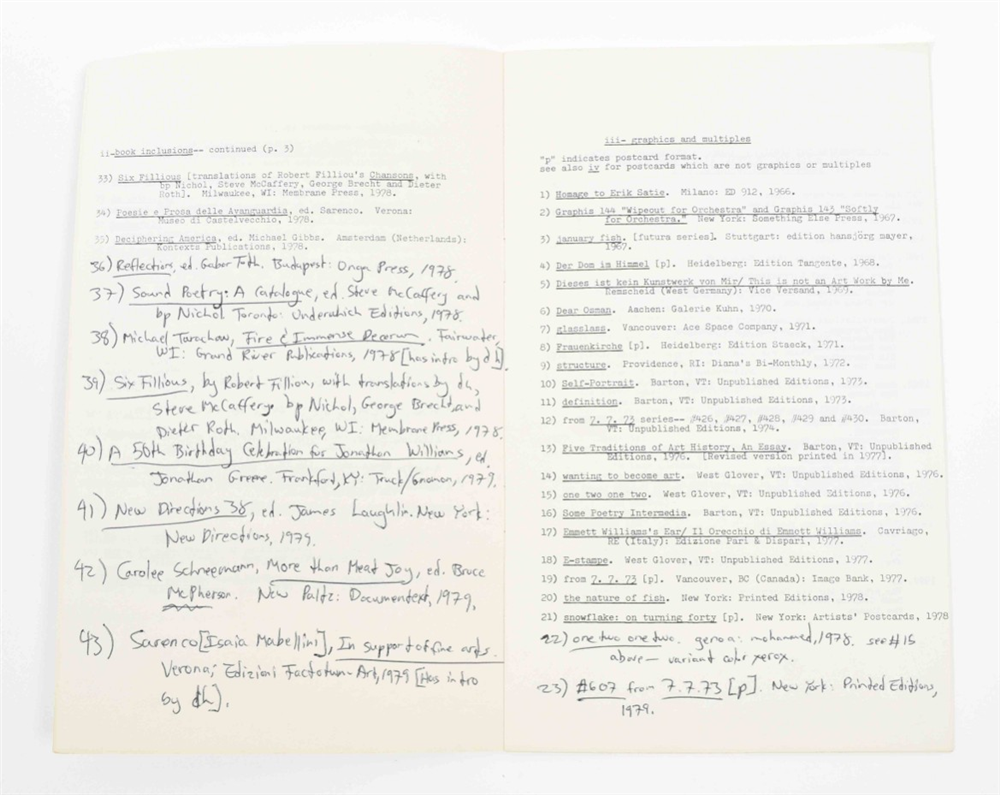 ii-book inclusions-- continued (p. 3)
33) Six Fillious [translations of Robert Filliou's Chansons, with
bp Nichol, Steve McCaffery, George Brecht and Dieter
Roth]. Milwaukee, WI: Membrane Press, 1978.
34) Poesie e Prosa delle Avanguardia, ed. Sarenco. Verona:
Museo di Castelvecchio, 1978.
35) Deciphering America, ed. Michael Gibbs. Amsterdam (Netherlands):
Kontexts Publications, 1978.
36) Reflections, ed. Gabor Toth. Budapest: Onga Press, 1978.
37) Sound Poetry: A Catalogue, ed. Steve McCaffery and
bp Nichol Toronto: Underwhich Editions, 1978.
38) Michael Tarachow, Fire & Immense Decorum. Fairwater,
WI: Grand River Publications, 1978 [has intro by dh]
39) Six Fillious, by Robert Filliou, with translations by dh,
Steve McCaffery bp Nichol, George Brecht, and
Dieter Roth. Milwaukee, WI: Membrane Press, 1978.
40) A 50th Birthday Celebration for Jonathan Williams, ed.
Jonathan Greene. Frankfort, KY: Truck/Gnomon, 1979.
41) New Directions 38, ed. James Laughlin. New York:
New Directions, 1979.
42) Carolee Schneemann, More than Meat Joy, ed. Bruce
McPherson. New Paltz: Documentext, 1979.
43) Sarenco [Isaia Mabellini], In support of fine arts.
Verona; Edizioni Factotum-Art, 1979 [Has intro
by dh].
iii- graphics and multiples
"p" indicates postcard format.
see also iv for postcards which are not graphics or multiples
1) Homage to Erik Satie. Milano: ED 912, 1966.
2) Graphis 144 "Wipeout for Orchestra" and Graphis 143 "Softly
for Orchestra." New York: Something Else Press, 1967.
3) january fish. [futura series]. Stuttgart: edition hansjörg mayer,
1967.
4) Der Dom im Himmel [p]. Heidelberg: Edition Tangente, 1968.
5) Dieses ist kein Kunstwerk von Mir/ This is not an Art Work by Me.
Remscheid (West Germany): Vice Versand, 1969.
6) Dear Osman. Aachen: Galerie Kuhn, 1970.
7) glasslass. Vancouver: Ace Space Company, 1971.
8) Frauenkirche [p]. Heidelberg: Edition Staeck, 1971.
9) structure. Providence, RI: Diana's Bi-Monthly, 1972.
10) Self-Portrait. Barton, VT: Unpublished Editions, 1973.
11) definition. Barton, VT: Unpublished Editions, 1973.
12) from 7. 7. 73 series-- #426, #427, #428, #429 and #430. Barton,
VT: Unpublished Editions, 1974.
13) Five Traditions of Art History, An Essay. Barton, VT: Unpublished
Editions, 1976. [Revised version printed in 1977].
14) wanting to become art. West Glover, VT: Unpublished Editions, 1976.
15) one two one two. West Glover, VT: Unpublished Editions, 1976.
16) Some Poetry Intermedia. Barton, VT: Unpublished Editions, 1976.
17) Emmett Williams's Ear/ Il Orecchio di Emmett Williams. Cavriago,
RE (Italy): Edizione Pari & Dispari, 1977.
18) E-stampe. West Glover, VT: Unpublished Editions, 1977.
19) from 7. 7. 73 [p]. Vancouver, BC (Canada): Image Bank, 1977.
20) the nature of fish. New York: Printed Editions, 1978.
21) snowflake: on turning forty [p]. New York: Artists' Postcards, 1978
22) one two one two. genoa: mohammed, 1978. see #15
above— variant color xerox.
23) #607 from 7.7.73 [p]. New York: Printed Editions,
1979.